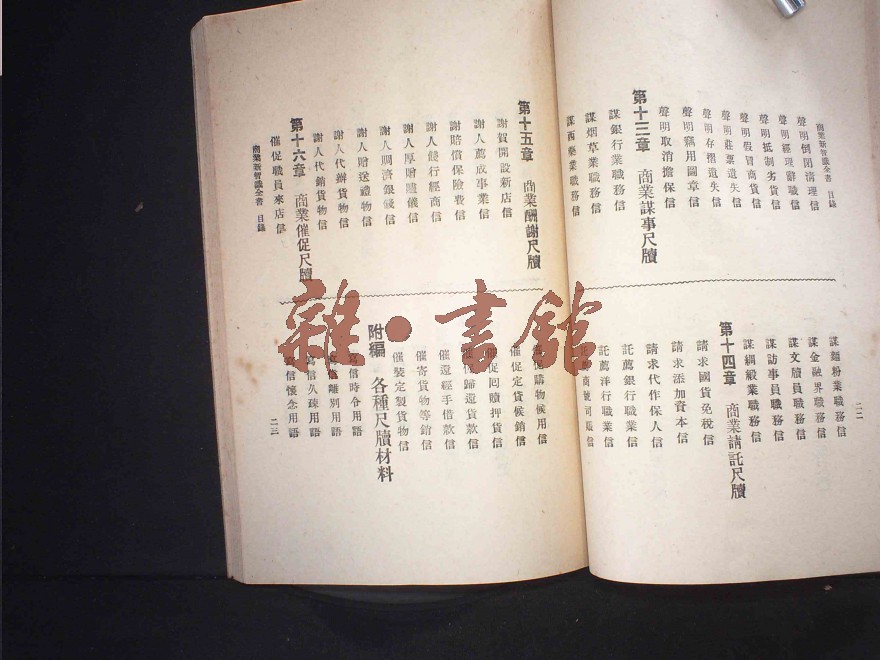 商業新智識全書 目錄
二二
聲明倒閉清理信
聲明經理辭職信
聲明抵制劣貨信
聲明假冒商貨信
聲明莊票遺失信
聲明存摺遺失信
聲明竊用圖章信
聲明取消擔保信
第十三章 商業謀事尺牘
謀銀行業職務信
謀烟草業職務信
謀西藥業職務信
謀麵粉業職務信
謀金融界職務信
謀文牘員職務信
謀訪事員職務信
謀綢緞業職務信
第十四章 商業請託尺牘
請求國貨免稅信
請求添加資本信
請求代作保人信
託薦銀行職業信
託薦洋行職業信
託薦商號司賬信
第十五章 商業酬謝尺牘
謝賀開設新店信
謝人薦成事業信
謝賠償保險費信
謝人餞行經商信
謝人厚贈賻儀信
謝人賙濟銀錢信
謝人贈送禮物信
謝人代辦貨物信
謝人代銷貨物信
第十六章 商業催促尺牘
催促職員來店信
催促購物候用信
催促定貨候銷信
催促回贖押貨信
催促歸還貨款信
催還經手借款信
催寄貨物等銷信
催裝定製貨物信
附編 各種尺牘材料
寫信時令用語
寫信離別用語
寫信久疎用語
寫信懷念用語
商業新智識全書 目錄
二三
雜·書館